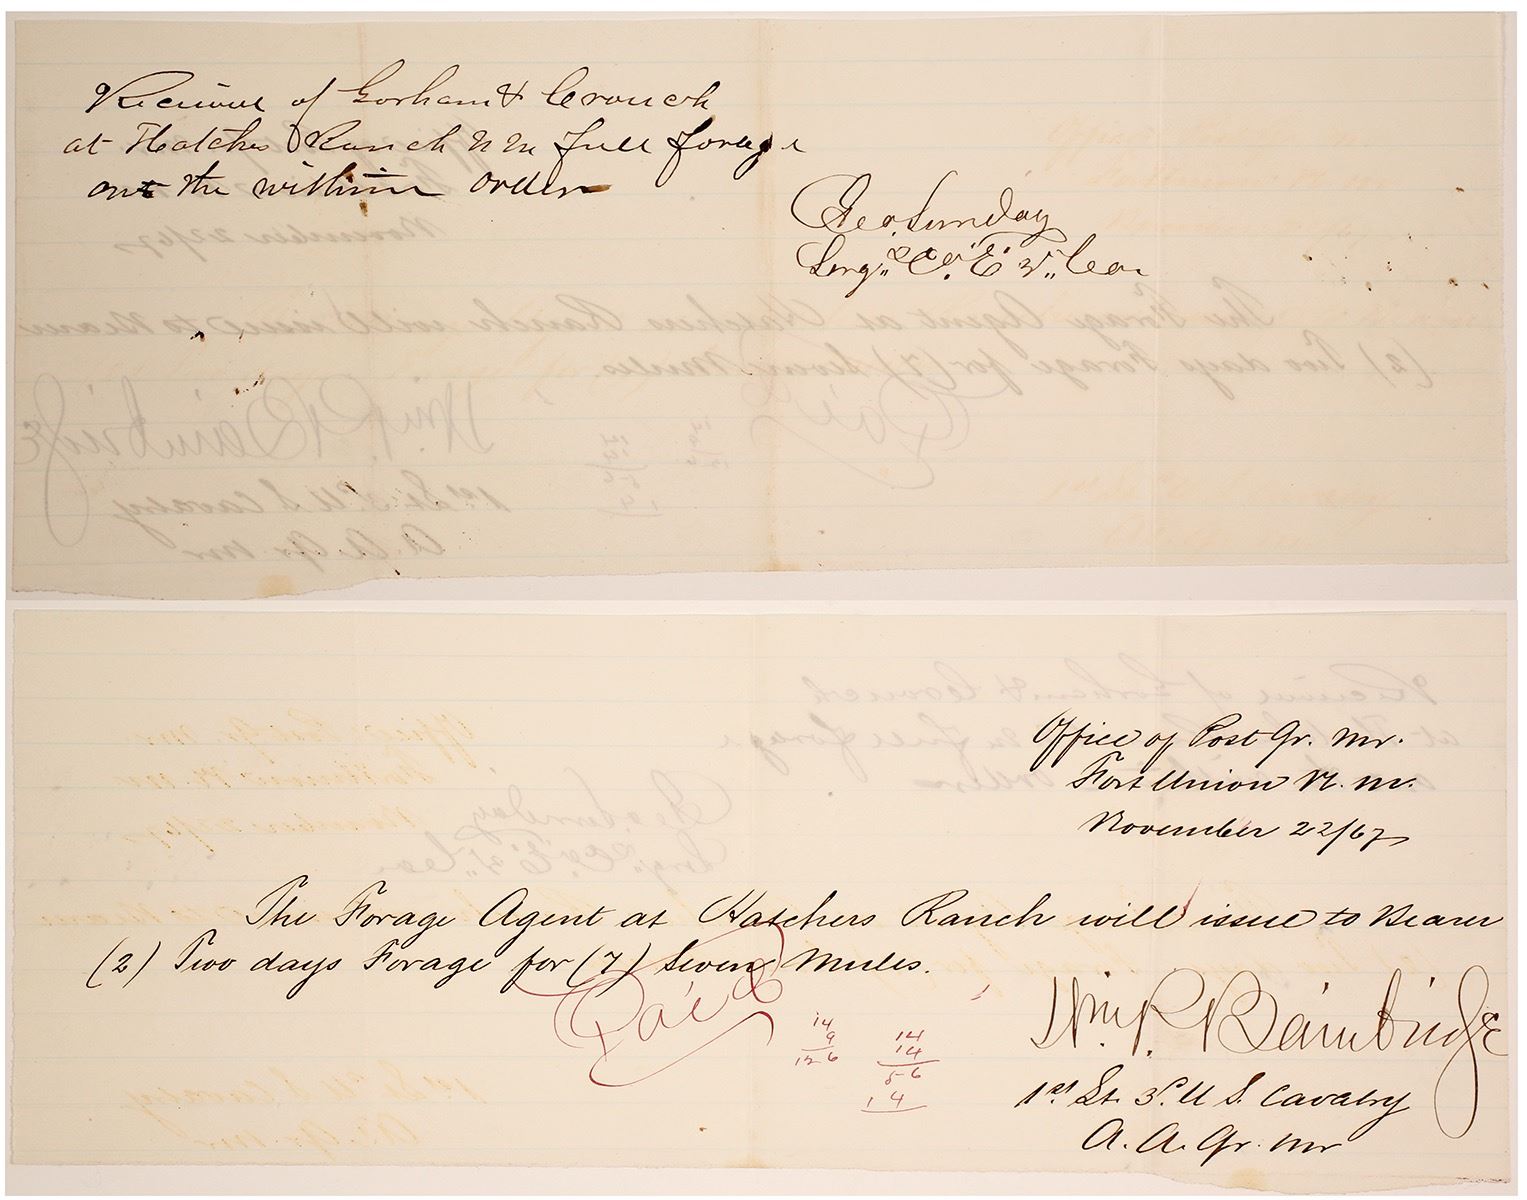 Recieved of Gorham & Crouch
at Hatches Ranch N M full forage
on the within order
Geo. Sunday
Serg. Co. E V. Cav
Office of Post Qr. Mr.
Fort Union N. M.
November 22/67
The Forage Agent at Hatchers Ranch will issue to Bearer
(2) Two days Forage for (7) Seven Mules.
Paid
14
9
126
14
14
56
14
Wm. P. Bainbridge
1st Lt. 3d. U S. Cavalry
A. A. Qr. Mr